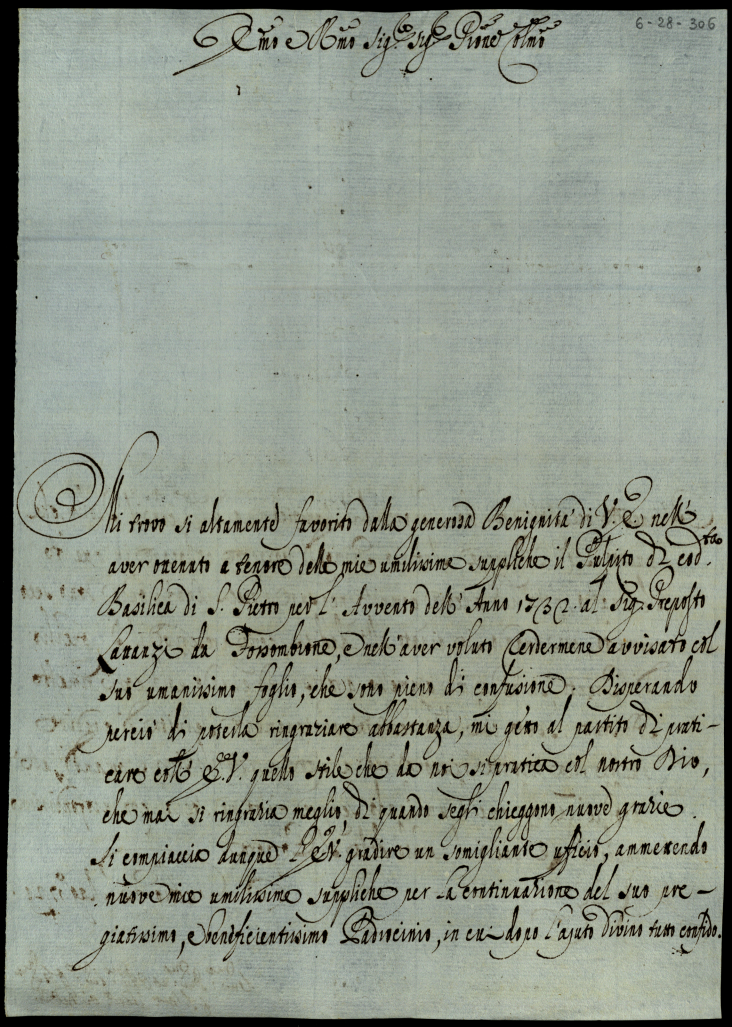 6-28-306
Emo e Rmo Sig.re Sig.re Prone Colmo
Mi trovo sì altamente favorito dalla generosa Benignità di V.E. nell'
aver ottenuto a tenore delle mie umilissime suppliche il Pulpito di cod.ta
Basilica di S. Pietro per l'Avvento dell'Anno 1732. al Sig. Preposto
Lavanzi da Fossombrone, e nell'aver voluto avvisato col
suo umanissimo foglio, che sono pieno di confusione. Disperando
perciò di poterla ringraziare abbastanza, mi getto al partito di prati-
care coll' E.V. quello stile che da noi si pratica col nostro Dio,
che mai si ringrazia meglio, di quando segli chieggono nuove grazie.
Si compiaccia dunque l'E.V. gradire un somigliante ufficio, ammettendo
nuove mie umilissime suppliche per la continuazione del suo pre-
giatissimo, e beneficientissimo Padrocinio, in cui dopo l'ajuto Divino tutto confido.